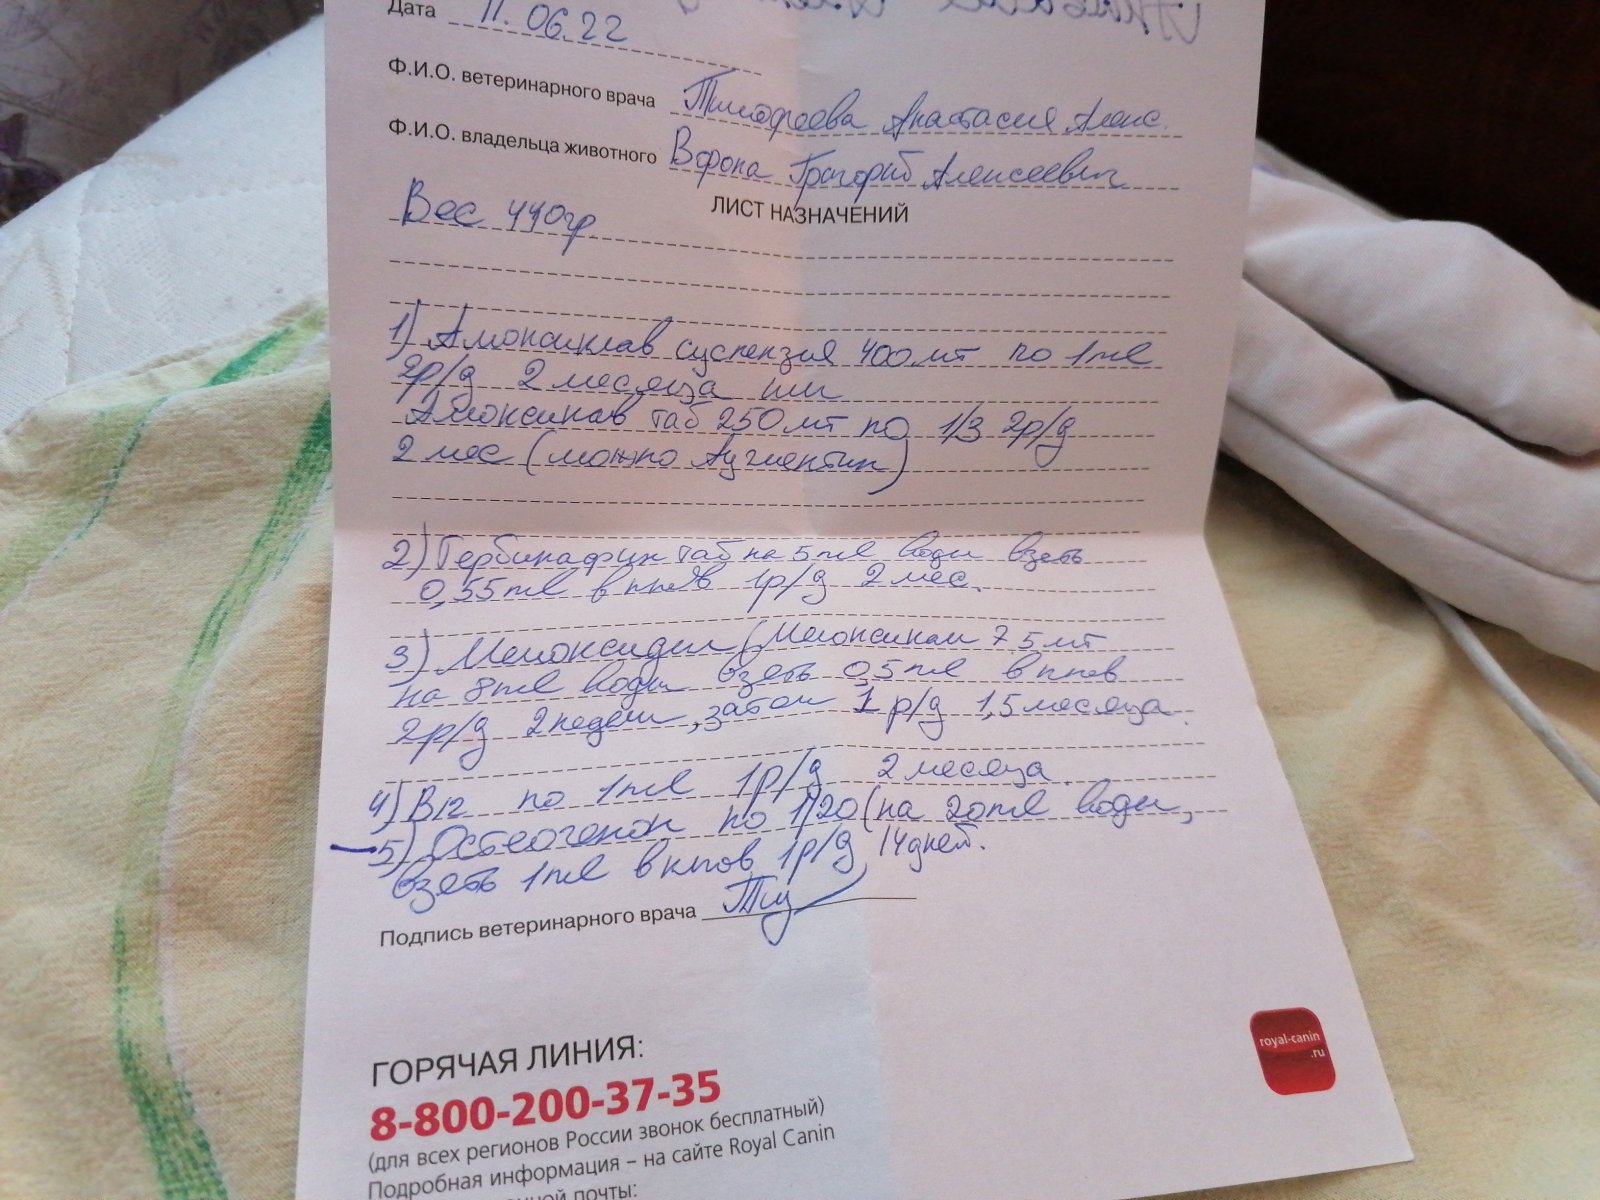 Дата 11.06.22
Ф.И.О. ветеринарного врача Тимофеева Анастасия Алекс.
Ф.И.О. владельца животного Ворона Григорий Алексеевич
ЛИСТ НАЗНАЧЕНИЙ
Вес 440гр
1) Амоксиклав суспензия 400мг по 1мл
2р/д 2 месяца или
Амоксиклав таб 250мг по 1/3 2р/д
2 мес (можно Аугментин)
2) Тербинафин таб на 5мл воды взять
0,55мл в клюв 1р/д 2 мес.
3) Мелоксидил (Мелоксикам 7,5мг
на 8мл воды взять 0,5мл в клюв
2р/д 2 недели, затем 1 р/д 1,5 месяца.
4) В12 по 1мл 1р/д 2 месяца.
5) Остеогенон по 1/20 (на 20мл воды,
взять 1мл в клюв 1р/д 14 дней.
Подпись ветеринарного врача
ГОРЯЧАЯ ЛИНИЯ:
8-800-200-37-35
(для всех регионов России звонок бесплатный)
Подробная информация – на сайте Royal Canin
нной почты:
royal-canin
.ru